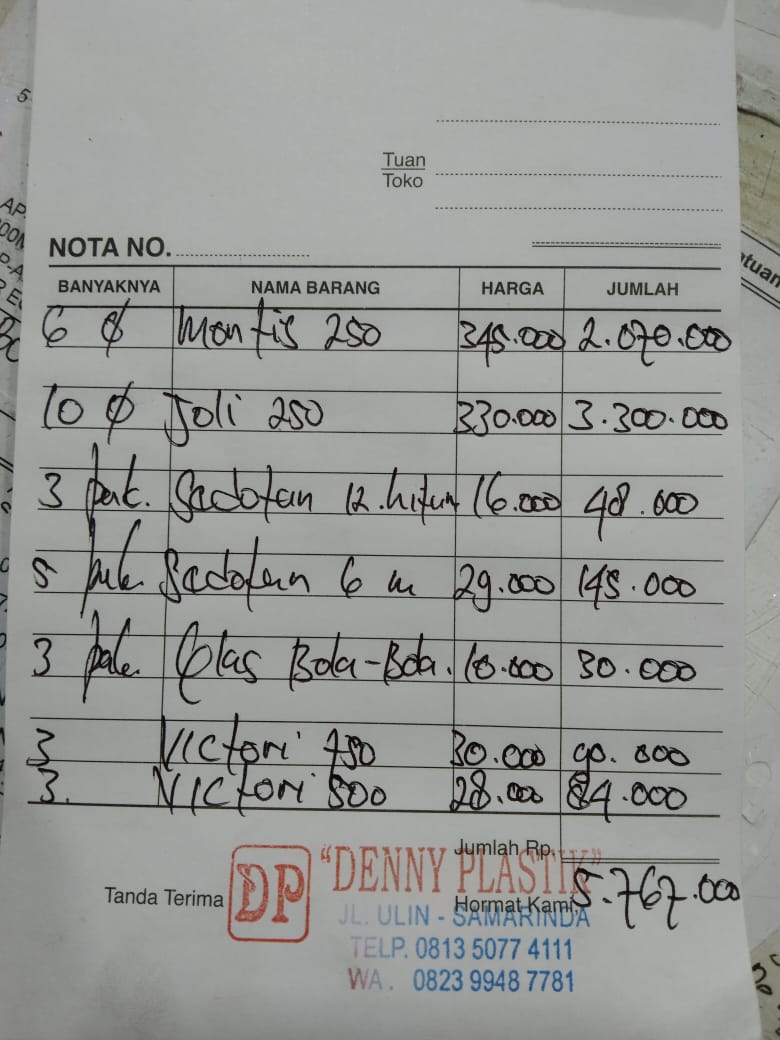 Tuan
Toko
NOTA NO.
BANYAKNYA NAMA BARANG HARGA JUMLAH
6 ₵ Montis 250 345.000 2.070.000
10 ₵ Joli 250 330.000 3.300.000
3 pak. Sedotan 12.hitum 16.000 48.000
5 pak Sedotan 6 m 29.000 145.000
3 pak. Glas Bola-Bola. 10.000 30.000
3 Victori 750 30.000 90.000
3. Victori 500 28.000 84.000
Jumlah Rp.
5.767.000
Tanda Terima
Hormat Kami,
DP
"DENNY PLASTIK"
JL. ULIN - SAMARINDA
TELP. 0813 5077 4111
WA. 0823 9948 7781